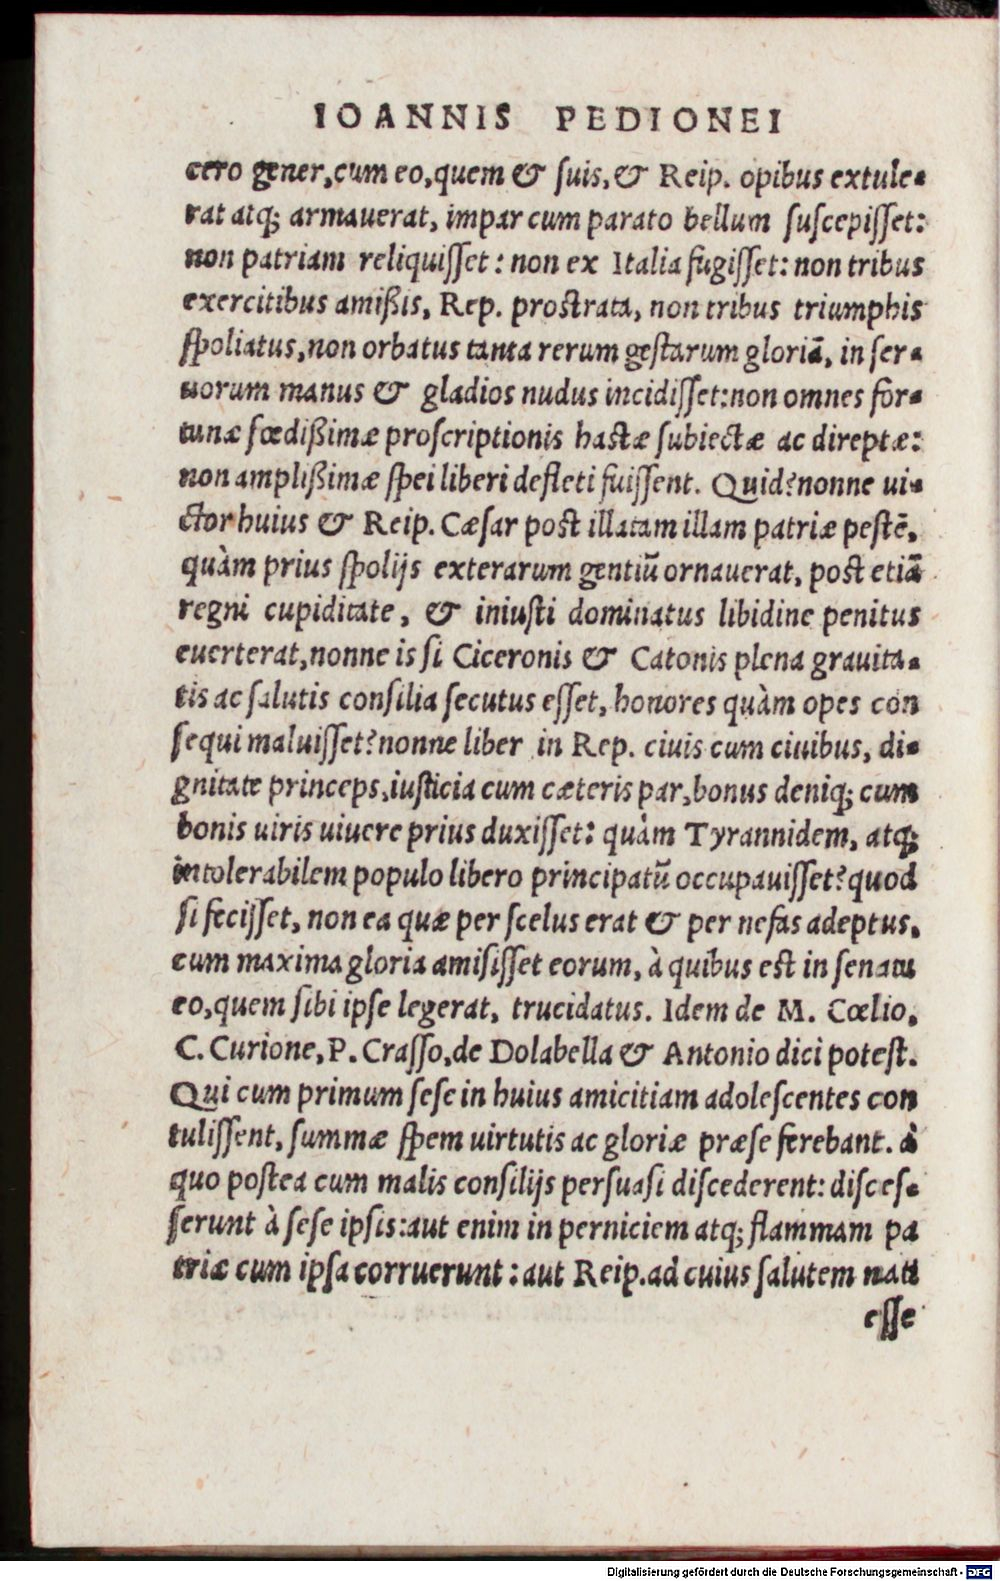 IOANNIS PEDIONEI
cero gener, cum eo, quem & suis, & Reip. opibus extule-
rat atq; armauerat, impar cum parato bellum suscepisset:
non patriam reliquisset: non ex Italia fugisset: non tribus
exercitibus amißis, Rep. prostrata, non tribus triumphis
spoliatus, non orbatus tanta rerum gestarum gloriā, in ser-
uorum manus & gladios nudus incidisset: non omnes for-
tunæ fœdißimæ proscriptionis hastæ subiectæ ac direptæ:
non amplißimæ spei liberi defleti fuissent. Quid? nonne ui-
ctor huius & Reip. Cæsar post illatam illam patriæ pestē,
quàm prius spolijs exterarum gentiū ornauerat, post etiā
regni cupiditate, & iniusti dominatus libidine penitus
euerterat, nonne is si Ciceronis & Catonis plena grauita-
tis ac salutis consilia secutus esset, honores quàm opes con
sequi maluisset? nonne liber in Rep. ciuis cum ciuibus, di-
gnitate princeps, iusticia cum cæteris par, bonus deniq; cum
bonis uiris uiuere prius duxisset: quàm Tyrannidem, atq;
intolerabilem populo libero principatū occupauisset? quod
si fecisset, non ea quæ per scelus erat & per nefas adeptus,
cum maxima gloria amisisset eorum, à quibus est in senatu
eo, quem sibi ipse legerat, trucidatus. Idem de M. Cœlio,
C. Curione, P. Crasso, de Dolabella & Antonio dici potest.
Qui cum primum sese in huius amicitiam adolescentes con
tulissent, summæ spem uirtutis ac gloriæ præse ferebant. à
quo postea cum malis consilijs persuasi discederent: disces-
serunt à sese ipsis: aut enim in perniciem atq; flammam pa
triæ cum ipsa corruerunt: aut Reip. ad cuius salutem nati
esse
Digitalisierung gefördert durch die Deutsche Forschungsgemeinschaft - DFG